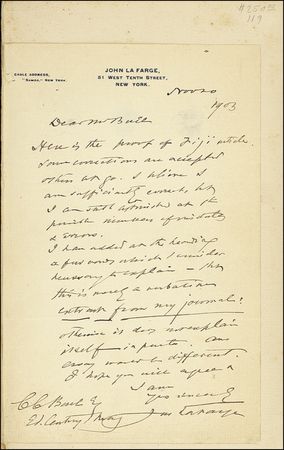 $250.00
119
CABLE ADDRESS,
"SAMOA," NEW YORK.
JOHN LA FARGE,
51 WEST TENTH STREET,
NEW YORK.
Nov 20
1903
Dear Mr Buel
Here is the proof of Fiji article.
Some corrections are accepted
others
I am still astonished at the
possible numbers of mistakes
& errors.
I have added at the heading
a few words which I consider
necessary to explain — that
this is merely a verbatim
extract from my journals:
otherwise it does not explain
itself — in parts. An
essay would be different.
I hope you will agree
I am
Yrs sincerely
C C Buel Esq
Ed. Century Mag
Jno La Farge